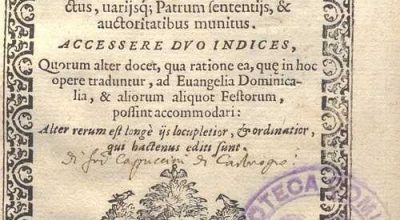 ctus, uarijsq́; Patrum sententijs, &
auctoritatibus munitus.
ACCESSERE DVO INDICES,
Quorum alter docet, qua ratione ea, quę in hoc
opere traduntur, ad Euangelia Dominica-
lia, & aliorum aliquot Festorum,
possint accommodari:
Alter rerum est longè ijs locupletior, & ordinatior,
qui hactenus editi sunt.
Capuccini di
TECA